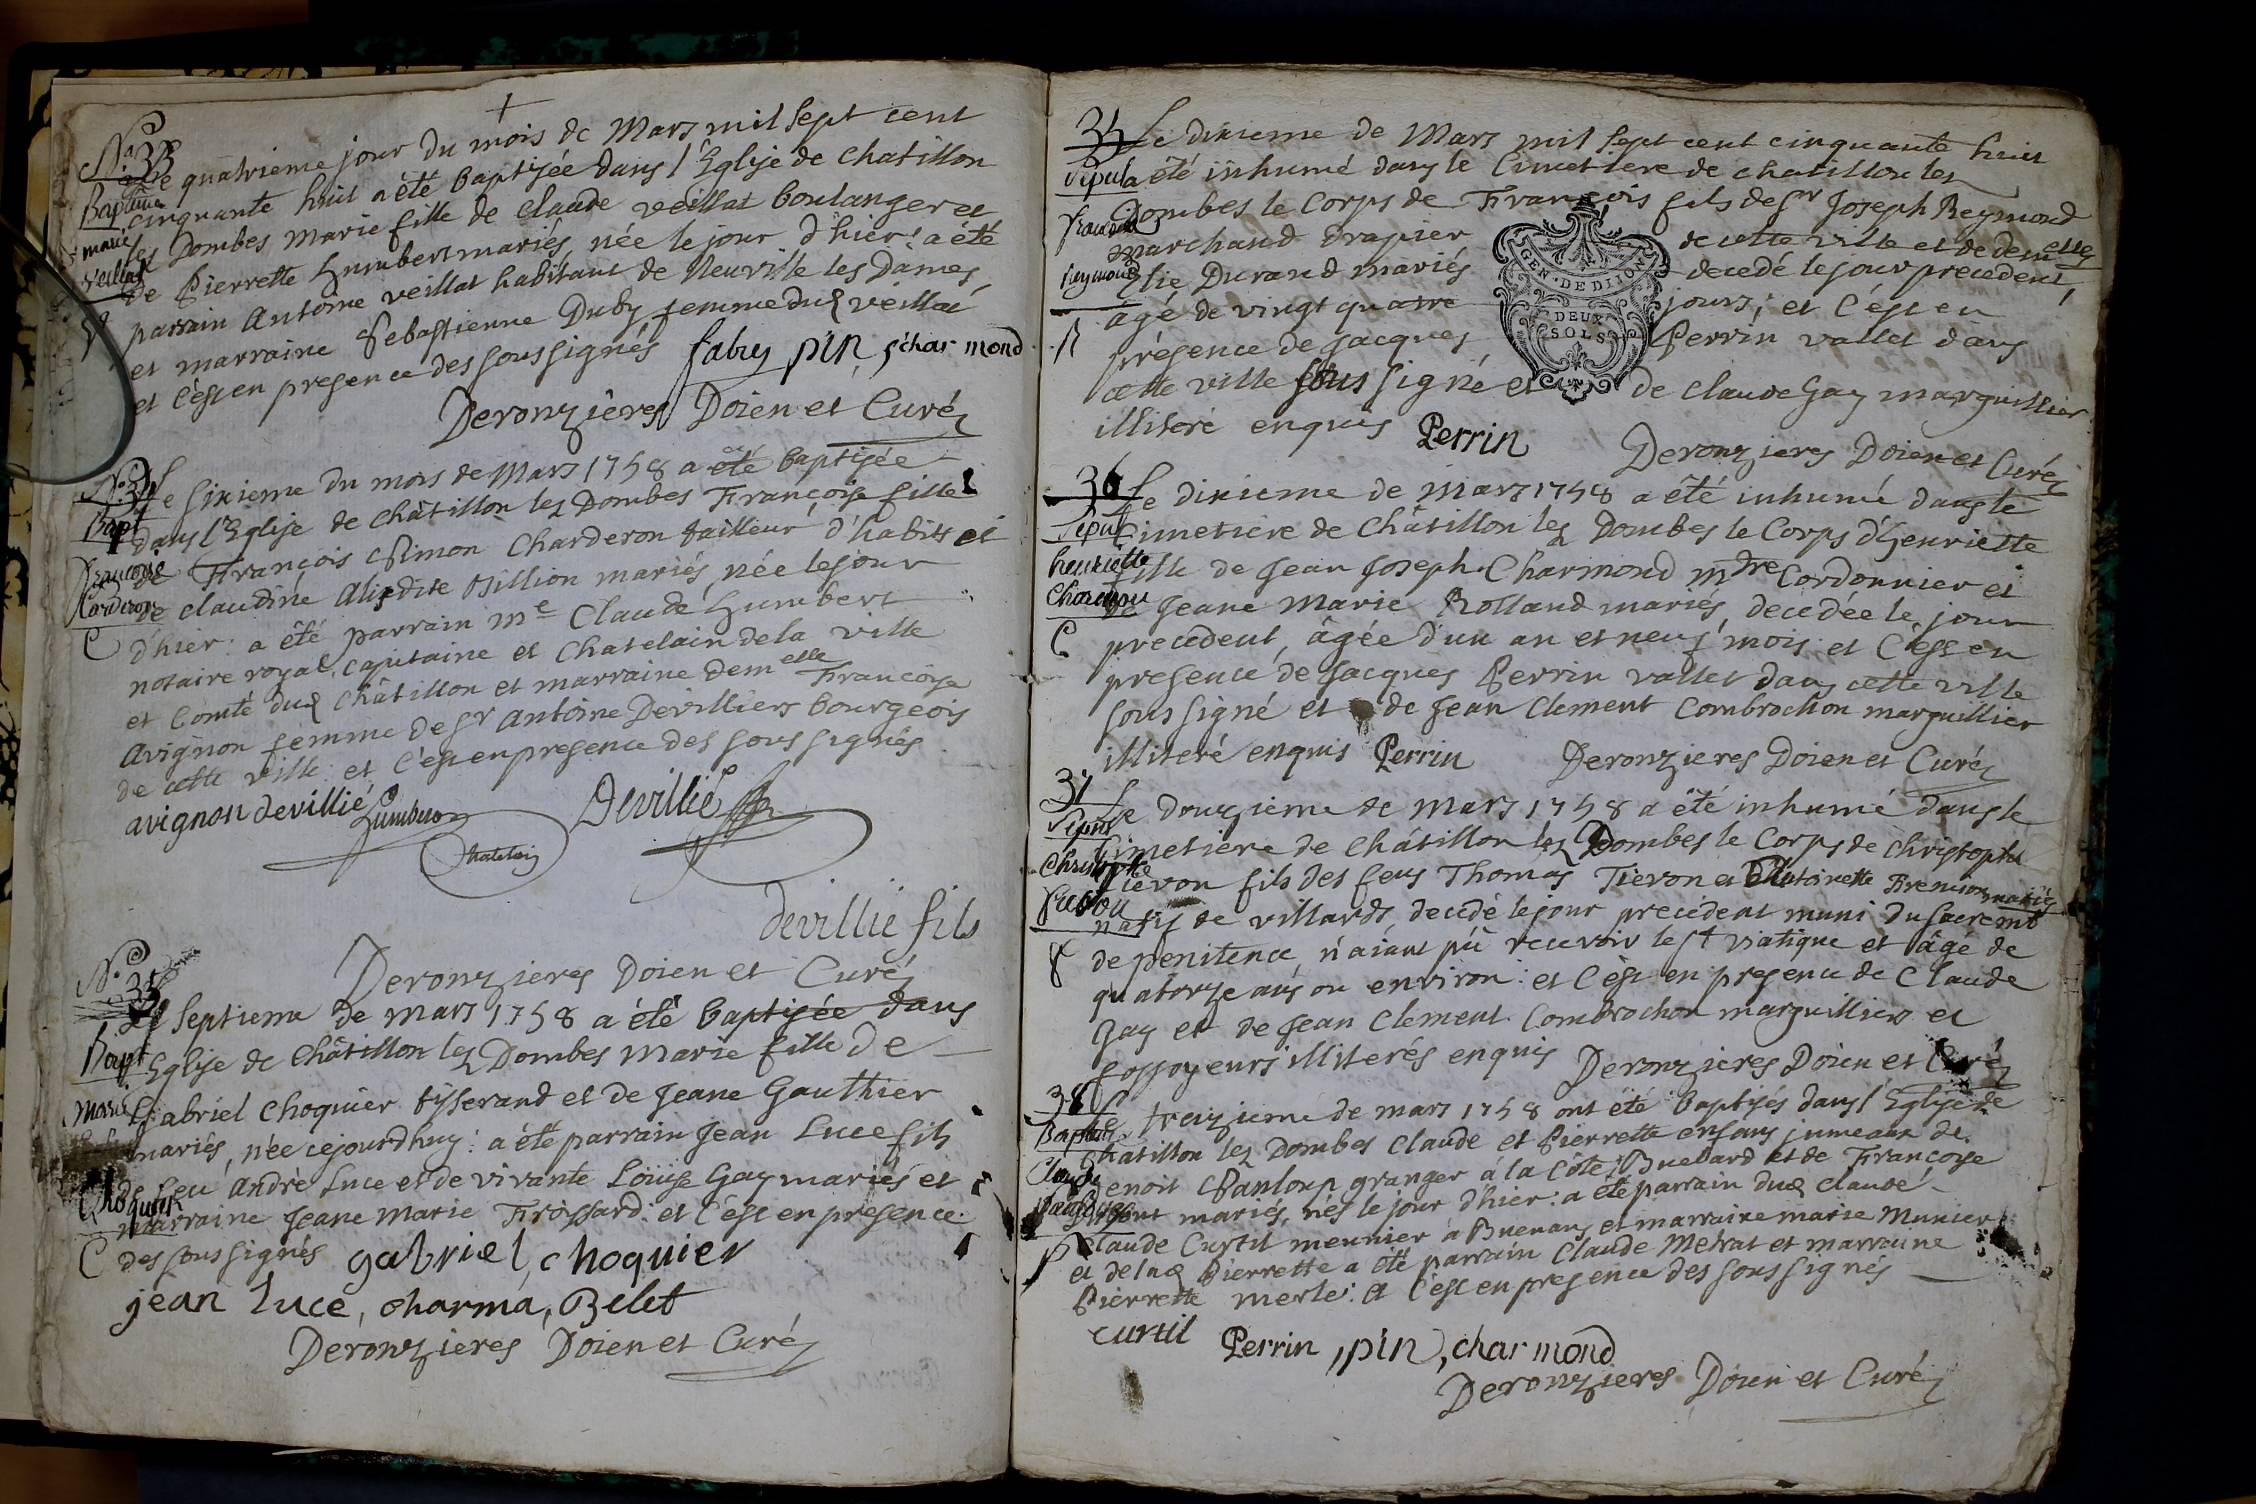 +
N.° 33
Baptême
marie
veillat
Le quatrieme jour du mois de Mars mil sept cent
cinquante huit a été baptisée dans l'Eglise de chatillon
les Dombes Marie fille de claude veillat boulanger et
de Pierrette humbert mariés, née le jour d'hier: a été
parrain Antoine veillat habitant de Neuville les Dames
et marraine Sebastienne Duby femme dud veillat
et c'est en presence des soussignés fabry pin, charmond
Deronzieres Doien et Curé
N.° 34
Bapt
francoise
Carderon
C
Le sixieme du mois de Mars 1758 a été baptisée
dans l'Eglise de châtillon lez Dombes Françoise fille
de François Simon Charderon tailleur d'habits et
de claudine Alix dite Billion mariés, née le jour
d'hier: a été parrain me Claude humbert
notaire royal, capitaine et chatelain de la ville
et Comté dud châtillon et marraine demelle Françoise
Avignon femme de Sr Antoine Devilliers bourgeois
de cette ville: et c'est en presence des soussignés
avignon devillié humbert Devillié
Chatelain
devillié fils
Deronzieres Doien et Curé
N.° 35
Bapt
Marie
Choquier
C
Le septieme de mars 1758 a été baptisée dans
l'Eglise de Châtillon lez Dombes Marie fille de
Gabriel Choquier tisserand et de Jeane Gauthier
mariés, née cejourdhuy: a été parrain Jean Luce fils
de feu André Luce et de vivante Loüise Gay mariés et
marraine Jeane Marie Frossard: et c'est en presence
des soussignés gabriel choquier
jean Luce, charma, Belet
Deronzieres Doien et Curé
35
Sepul
francois
Reymond
Le dixieme de Mars mil sept cent cinquante huit
a été inhumé dans le Cimetiere de chatillon les
Dombes le Corps de François fils de Sr Joseph Reymond
marchand drapier de cette ville et de demelle
Elie Durand mariés decedé le jour precedent,
âgé de vingt quatre jours; et c'est en
présence de Jacques Perrin vallet dans
cette ville soussigné et de claude Gay marguillier
illiteré enquis Perrin Deronzieres Doien et Curé
GEN. DE DIJON
DEUX
SOLS
36
Sepul
henriette
Charmond
C
Le dixieme de Mars 1758 a été inhumé dans le
Cimetiere de Châtillon lez Dombes le Corps d'henriette
fille de Jean Joseph Charmond mtre Cordonnier et
de Jeane Marie Rolland mariés, decedée le jour
precedent, âgée d'un an et neuf mois: et c'est en
presence de Jacques Perrin vallet dans cette ville
soussigné et de Jean Clement Combrochon marguillier
illiteré enquis Perrin Deronzieres Doien et Curé
37
Sepul
Christophe
Le douzieme de Mars 1758 a été inhumé dans le
Cimetiere de châtillon lez Dombes le Corps de christophe
Tievon fils des feus Thomas Tievon et Antoinette mariés
natif de villards, decedé le jour precedent muni du sacremt
de penitence, n'aiant pû recevoir le st viatique et âgé de
quatorze ans ou environ: et c'est en presence de Claude
Gay et de Jean Clement Combrochon marguilliers et
fossoyeurs illiterés enquis Deronzieres Doien et Curé
38
Baptêm
Claude
Le treizieme de mars 1758 ont été baptisés dans l'Eglise de
Châtillon lez Dombes Claude et Pierrette enfans jumeaux de
Benoit Panloup granger à la Côte Buenard et de Françoise
mariés, nés le jour d'hier: a été parrain dud claude
Claude Curtil meunier à Buenans et marraine marie Munier
et de lad Pierrette a été parrain Claude Metrat et marraine
Pierrette merle: et c'est en presence des soussignés
curtil Perrin, pin, charmond
Deronzieres Doien et Curé